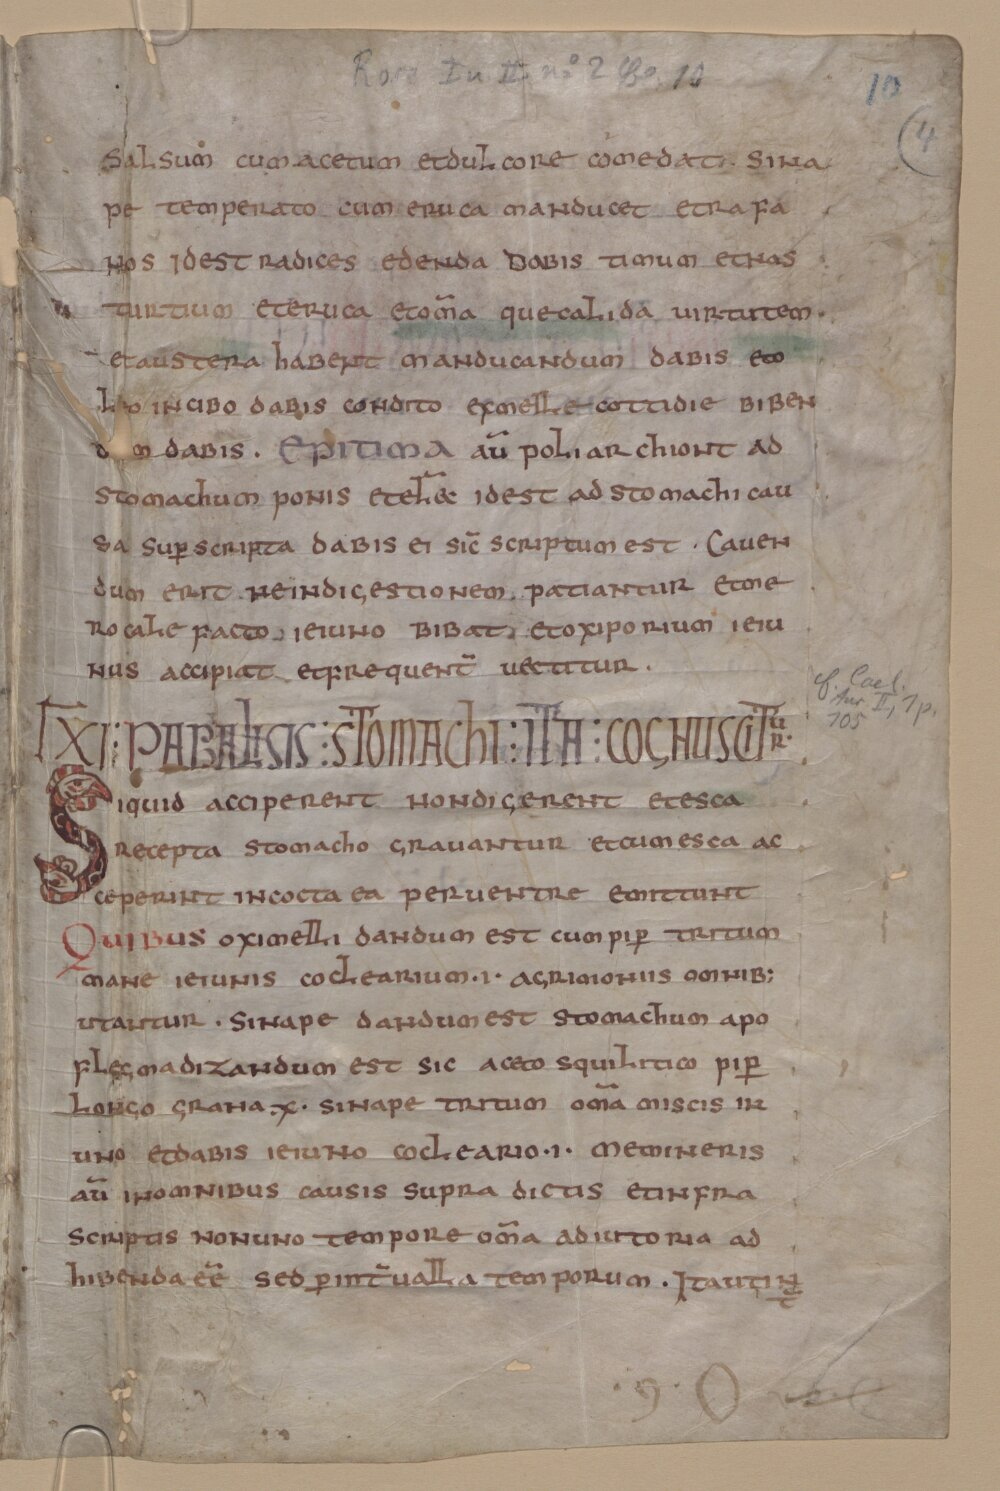 10
(4
salsum cum acetum et dulcore comedat. sina
pe temperato cum eruca manducet et rafa
nos idest radices edenda dabis timum et nas
turtium et eruca et om̄a que calida uirtutem.
et austera habent manducandum dabis et o
l o in cibo dabis condito ex melle cottidie biben
d m dabis. Epitima aū poliarchiont ad
stomachum ponis et el̄& idest ad stomachi cau
sa sup̱scripta dabis ei sic̄ scriptum est. Cauen
dum erit ne indigestionem patiantur et me
rocale facto ieiuno bibat et oxiporium ieiu
nus accipiat et frequent̄ uectitur.
LXI: PARALISIS: STOMAChI: ITA: COGNUSCITUR.
Siquid acciperent non digerent et esca
recepta stomacho grauantur et cum esca ac
ceperint incocta ea per uentre emittunt
Quibus oximelli dandum est cum pip̱ tritum
mane ieiunis coclearium .i. agrimoniis omnib;
utantur. sinape dandum est stomachum apo
flegmadizandum est sic aceto squilitico pip̱
longo grana .x. sinape tritum om̄a miscis in
uno et dabis ieiuno cocleario .i. memineris
aū in omnibus causis supra dictis et infra
scriptis non uno tempore om̄a adiutoria ad
hibenda eē sed p̱ int̄ualla temporum. Ita ut in
cf. Cael.
Aur. II, 1 p.
105
.9.